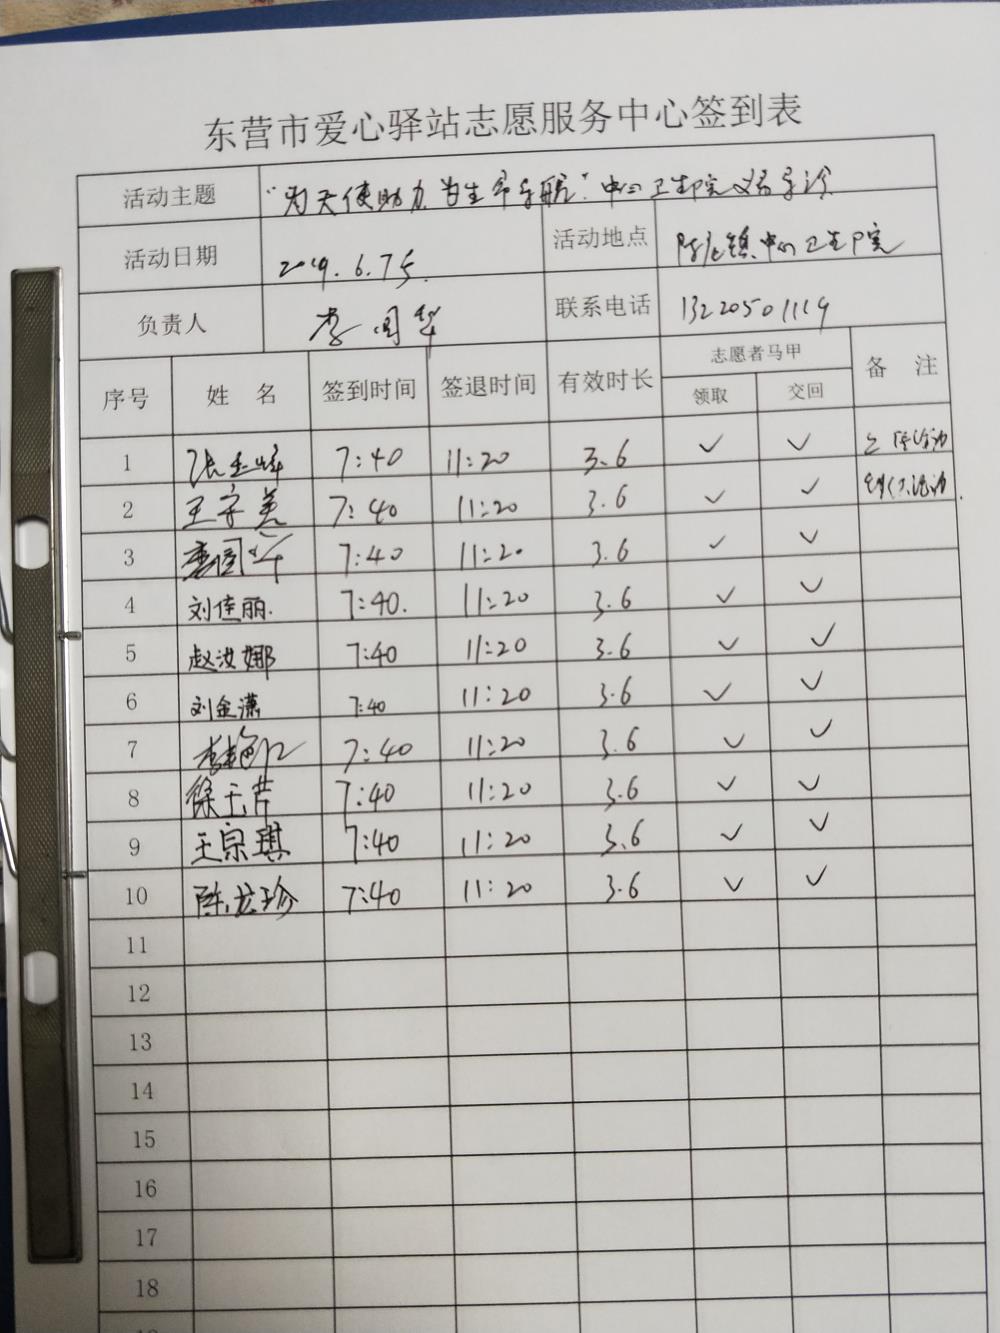 东营市爱心驿站志愿服务中心签到表
活动主题 "为天使助力 为生命导航" 中心卫生院义务导诊
活动日期 2019.6.75. 活动地点 镇中心卫生院
负责人 李国华 联系电话 13220501119
序号 姓 名 签到时间 签退时间 有效时长 志愿者马甲 备 注
领取 交回
1 张玉峰 7:40 11:20 3.6 ✓ ✓
2 王守美 7:40 11:20 3.6 ✓ ✓
3 李国华 7:40 11:20 3.6 ✓ ✓
4 刘佳丽. 7:40. 11:20 3.6 ✓ ✓
5 赵汝娜 7:40 11:20 3.6 ✓ ✓
6 刘金潇 7:40 11:20 3.6 ✓ ✓
7 李艳江 7:40 11:20 3.6 ✓ ✓
8 徐玉芹 7:40 11:20 3.6 ✓ ✓
9 王宗琪 7:40 11:20 3.6 ✓ ✓
10 陈龙珍 7:40 11:20 3.6 ✓ ✓
11
12
13
14
15
16
17
18